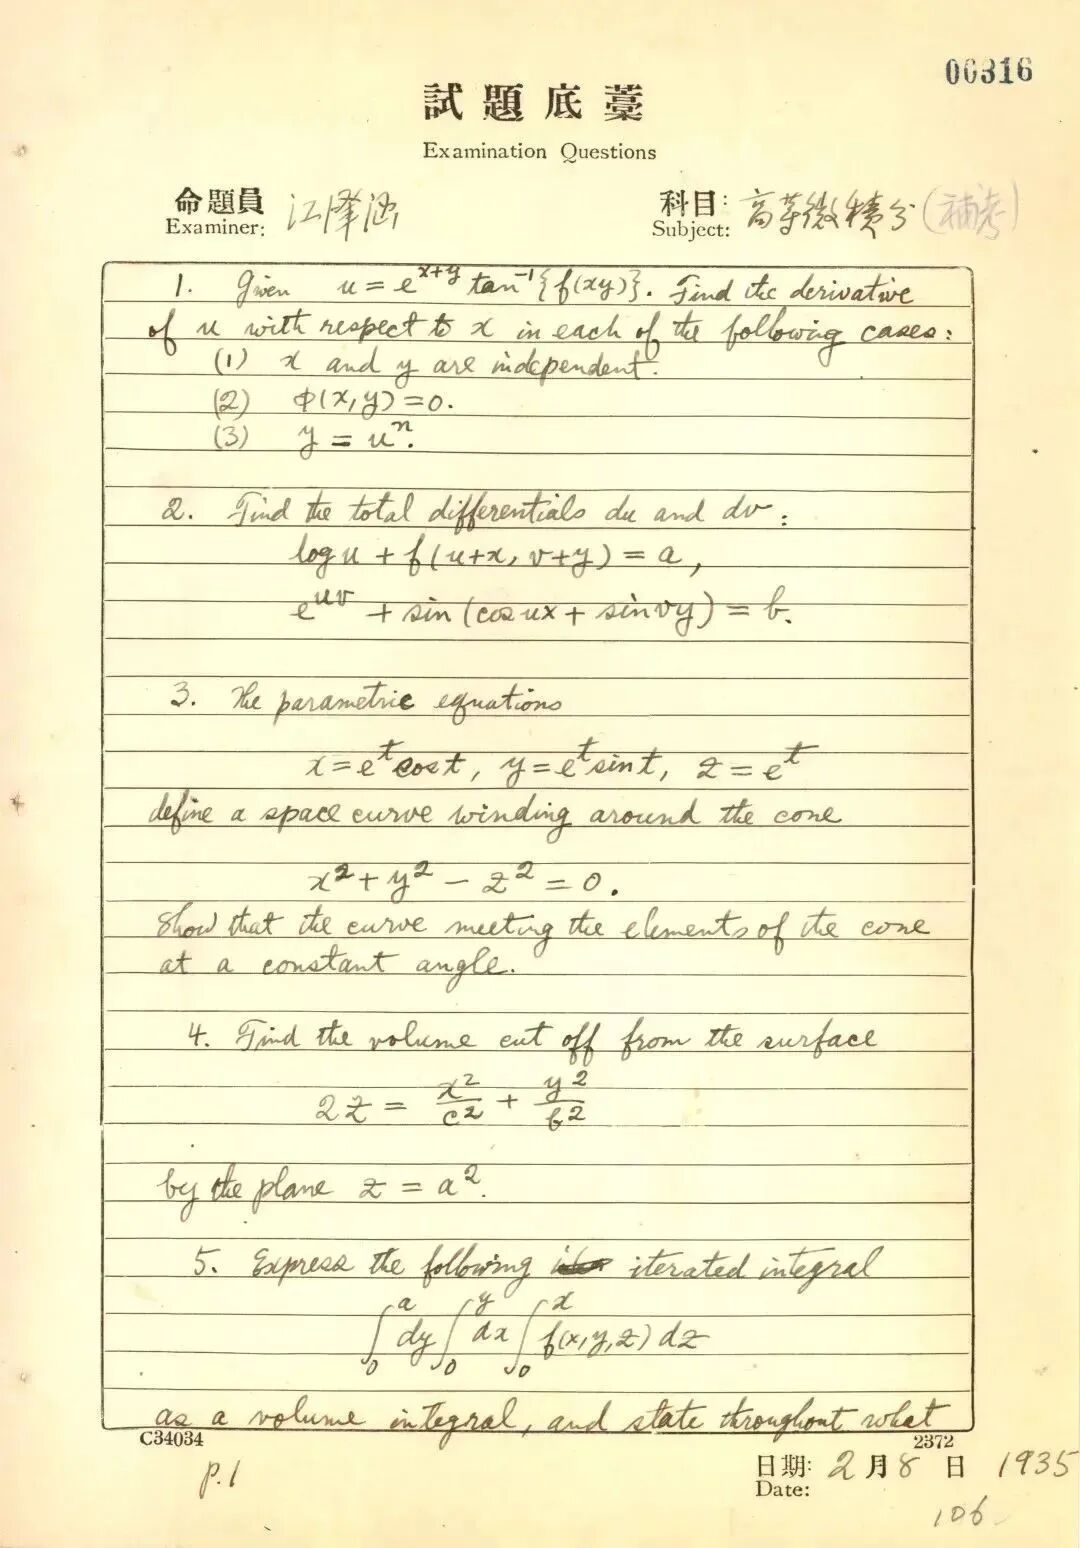 00316
試題底藁
Examination Questions
命題員 江澤涵
Examiner:
科目: 高等微積分(補考)
Subject:
1. Given u = e^{x+y} tan^{-1}{f(xy)}. Find the derivative
of u with respect to x in each of the following cases:
(1) x and y are independent.
(2) Φ(x,y)=0.
(3) y = u^n.
2. Find the total differentials du and dv:
log u + f(u+x, v+y) = a,
e^{uv} + sin(cos ux + sin vy) = b.
3. The parametric equations
x=e^t cost, y=e^t sint, z=e^t
define a space curve winding around the cone
x^2 + y^2 - z^2 = 0.
Show that the curve meeting the elements of the cone
at a constant angle.
4. Find the volume cut off from the surface
2z = x^2/c^2 + y^2/b^2
by the plane z = a^2.
5. Express the following iterated integral
∫_0^a dy ∫_0^y dx ∫_0^x f(x,y,z) dz
as a volume integral, and state throughout what
C34034
2372
p.1
日期: 2月8日 1935
Date:
106